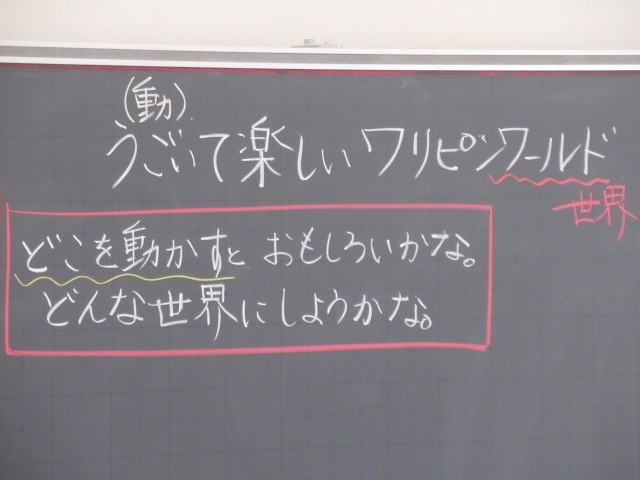 (動)
うごいて楽しいワリピンワールド
世界
どこを動かすと おもしろいかな。
どんな世界にしようかな。